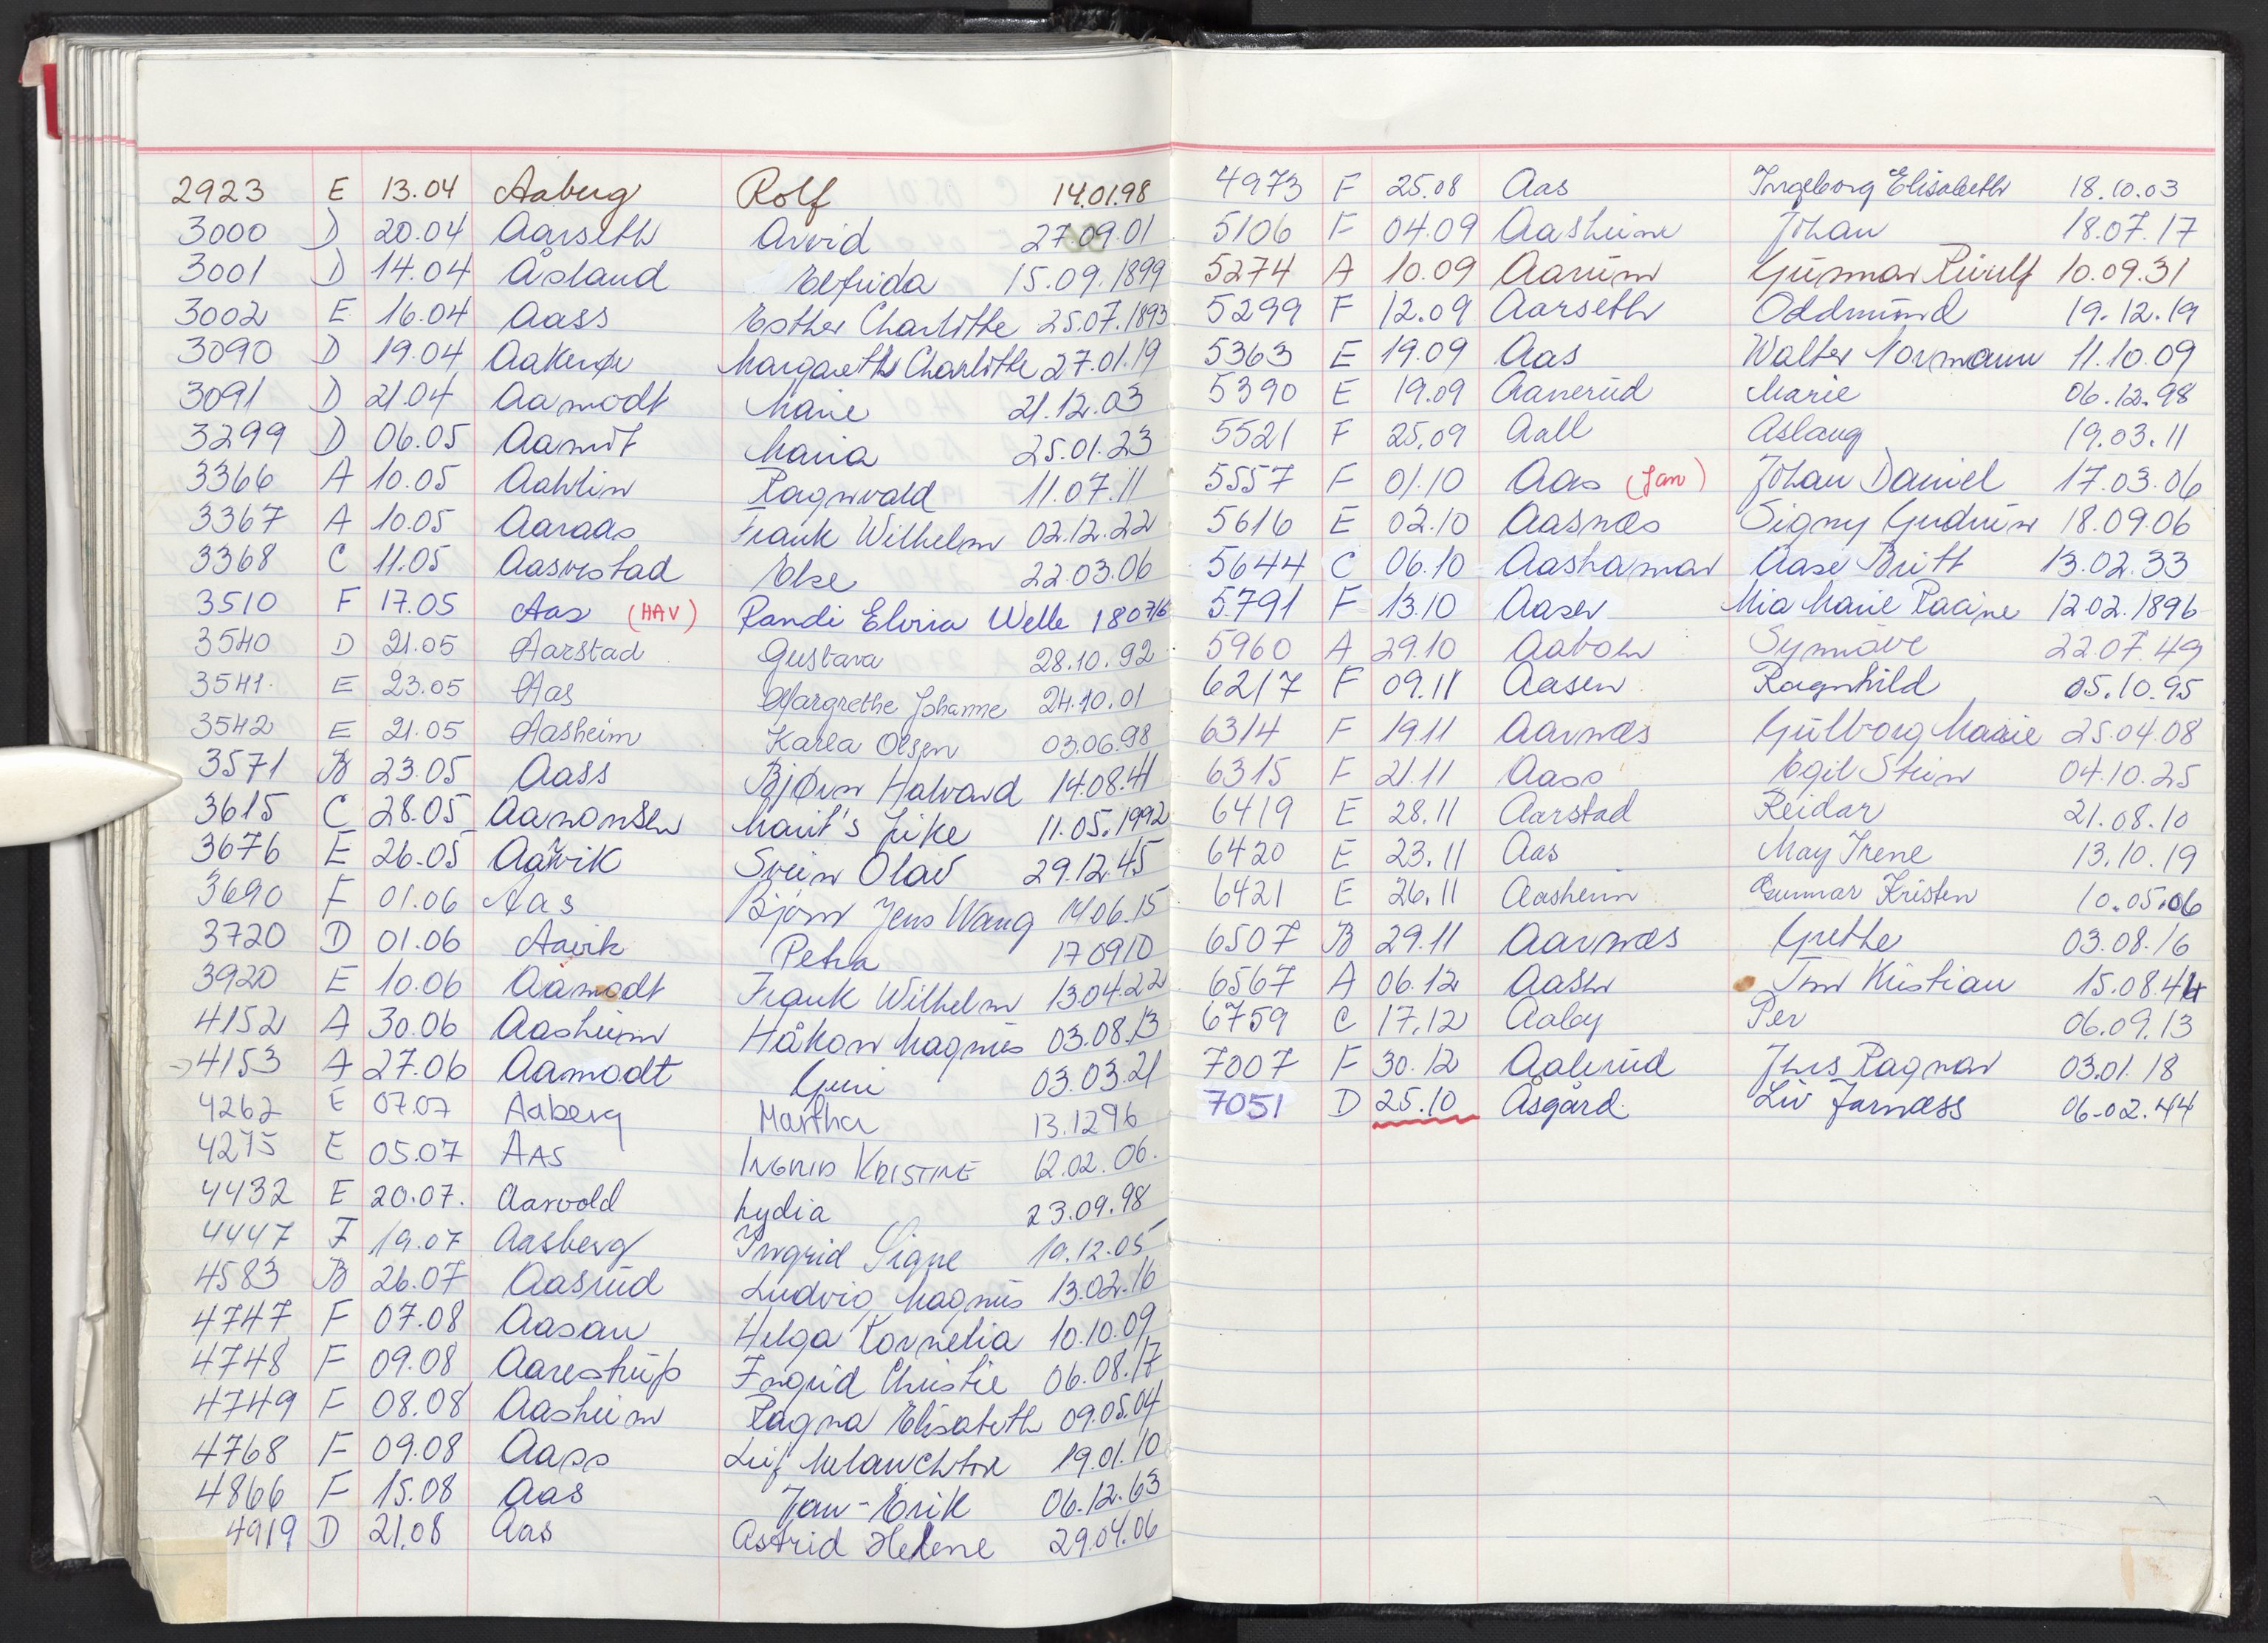 2923 E 13.04 Aaberg Rolf 14.01.98
3000 D 20.04 Aarseth Arvid 27.09.01
3001 D 14.04 Åsland Elfrida 15.09.1899
3002 E 16.04 Aass Esther Charlotte 25.07.1893
3090 D 19.04 Aakerøe Margareth Charlotte 27.01.19
3091 D 21.04 Aamodt Marie 21.12.03
3299 D 06.05 Aamot Maria 25.01.23
3366 A 10.05 Aahlin Ragnvald 11.07.11
3367 A 10.05 Aaraas Frank Wilhelm 02.12.22
3368 C 11.05 Aasvestad Else 22.03.06
3510 F 17.05 Aas (HAV) Randi Elvira Welle 180716
3540 D 21.05 Aarstad Gustava 28.10.92
3541 E 23.05 Aas Margrethe Johanne 24.10.01
3542 E 21.05 Aasheim Karla Olsen 03.06.98
3571 B 23.05 Aass Bjørn Halvard 14.08.41
3615 C 28.05 Aanonsen Marit's pike 11.05.1992
3676 E 26.05 Aarvik Svein Olav 29.12.45
3690 F 01.06 Aas Bjørn Jens Wang 14.06.15
3720 D 01.06 Aavik Petra 170910
3920 E 10.06 Aamodt Frank Wilhelm 13.04.22
4152 A 30.06 Aasheim Håkon Magnus 03.08.13
→ 4153 A 27.06 Aamodt Guri 03.03.21
4262 E 07.07 Aaberg Martha 13.1296
4275 E 05.07 AAS INGRID KRISTINE 12.02.06.
4432 E 20.07. Aarvold Lydia 23.09.98
4447 F 19.07 Aasberg Ingrid Signe 19.12.05
4583 B 26.07 Aasrud Ludvig Magnus 13.02.16
4747 F 07.08 Aasau Helga Kornelia 10.10.09
4748 F 09.08 Aarestrup Ingrid Christie 06.08.17
4749 F 08.08 Aasheim Ragna Elisabeth 09.05.04
4768 F 09.08 Aass Leif Melanchton 19.01.10
4866 F 15.08 Aas Jan-Erik 06.12.63
4919 D 21.08 Aas Astrid Helene 29.04.06
4973 F 25.08 Aas Ingeborg Elisabeth 18.10.03
5106 F 04.09 Aasheim Johan 18.07.17
5274 A 10.09 Aarum Gunnar Runulf 10.09.31
5299 F 12.09 Aarseth Oddmund 19.12.19
5363 E 19.09 Aas Walter Normann 11.10.09
5390 E 19.09 Aanerud Marie 06.12.98
5521 F 25.09 Aall Aslaug 19.03.11
5557 F 01.10 Aas (Jan) Johan Daniel 17.03.06
5616 E 02.10 Aasnæs Signy Gudrun 18.09.06
5644 C 06.10 Aashamar Aase Britt 13.02.33
5791 F 13.10 Aasen Mia Marie Racine 12.02.1896
5960 A 29.10 Aaboen Synnøve 22.07.49
6217 F 09.11 Aasen Ragnhild 05.10.95
6314 F 19.11 Aarnæs Gulborg Marie 25.04.08
6315 F 21.11 Aass Egil Stein 04.10.25
6419 E 28.11 Aarstad Reidar 21.08.10
6420 E 23.11 Aas May Irene 13.10.19
6421 E 26.11 Aasheim Gunnar Kristen 10.05.06
6507 B 29.11 Aarnæs Grethe 03.08.16
6567 A 06.12 Aasen Tom Kristian 15.08.44
6759 C 17.12 Aaby Per 06.09.13
7007 F 30.12 Aalerud Jens Ragnar 03.01.18
7051 D 25.10 Åsgård Liv Jarnæss 06-02.44